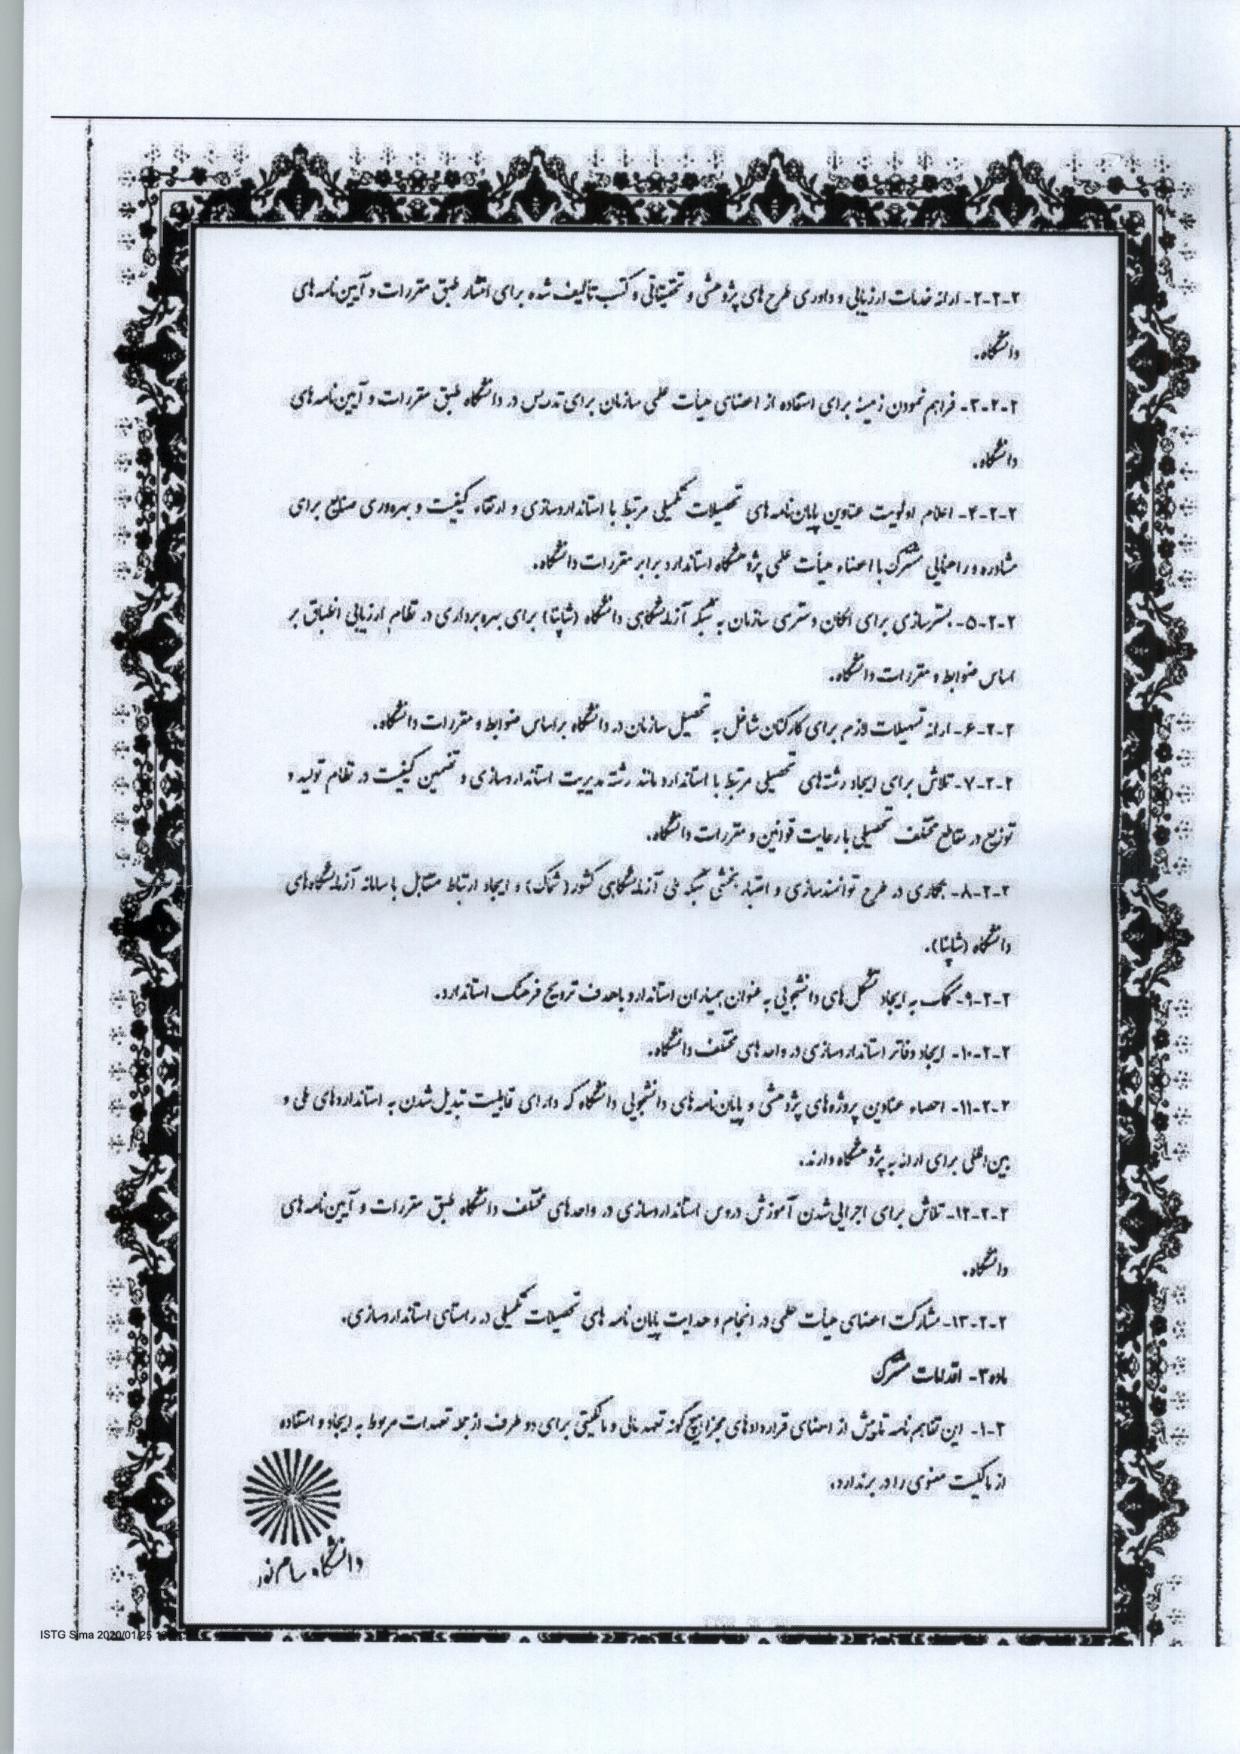 ۲-۲-۲- ارائه خدمات ارزیابی و داوری طرح های پژوهشی و تحقیقاتی و کتب تألیف شده برای انتشار طبق مقررات و آیین نامه های
دانشگاه.
۳-۲-۲- فراهم نمودن زمینه برای استفاده از اعضای هیأت علمی سازمان برای تدریس در دانشگاه طبق مقررات و آیین نامه های
دانشگاه.
۴-۲-۲- اعلام اولویت عناوین پایان نامه های تحصیلات تکمیلی مرتبط با استانداردسازی و ارتقاء کیفیت و بهره وری منابع برای
مشاوره و راهنمایی مشترک با اعضاء هیأت علمی پژوهشگاه استاندارد برابر مقررات دانشگاه.
۵-۲-۲- بسترسازی برای امکان دسترسی سازمان به شبکه آزمایشگاهی دانشگاه (شاپنا) برای بهره برداری در نظام ارزیابی انطباق بر
اساس ضوابط و مقررات دانشگاه.
۶-۲-۲- ارائه تسهیلات لازم برای کارکنان شاغل به تحصیل سازمان در دانشگاه براساس ضوابط و مقررات دانشگاه.
۷-۲-۲- تلاش برای ایجاد رشته های تحصیلی مرتبط با استاندارد مانند رشته مدیریت استانداردسازی و تضمین کیفیت در نظام تولید و
توزیع در مقاطع مختلف تحصیلی با رعایت قوانین و مقررات دانشگاه.
۸-۲-۲- همکاری در طرح توانمندسازی و اعتبار بخشی شبکه ملی آزمایشگاهی کشور (شمک) و ایجاد ارتباط متقابل با سامانه آزمایشگاه های
دانشگاه (شاپنا).
۹-۲-۲- کمک به ایجاد تشکل های دانشجویی به عنوان همیاران استاندارد با هدف ترویج فرهنگ استاندارد.
۱۰-۲-۲- ایجاد دفاتر استانداردسازی در واحدهای مختلف دانشگاه.
۱۱-۲-۲- احصاء عناوین پروژه های پژوهشی و پایان نامه های دانشجویی دانشگاه که دارای قابلیت تبدیل شدن به استانداردهای ملی و
بین المللی برای ارائه به پژوهشگاه دارند.
۱۲-۲-۲- تلاش برای اجرایی شدن آموزش دروس استانداردسازی در واحدهای مختلف دانشگاه طبق مقررات و آیین نامه های
دانشگاه.
۱۳-۲-۲- مشارکت اعضای هیأت علمی در انجام و هدایت پایان نامه های تحصیلات تکمیلی در راستای استانداردسازی.
ماده ۳- اقدامات مشترک
۱-۳- این تفاهم نامه تا پیش از امضای قراردادهای مجزا هیچ گونه تعهد مالی و مالکیتی برای دو طرف از جمله تعهدات مربوط به ایجاد و استفاده
از مالکیت معنوی را در بر ندارد.
دانشگاه پیام نور
ISTG Sima 2020/01/25